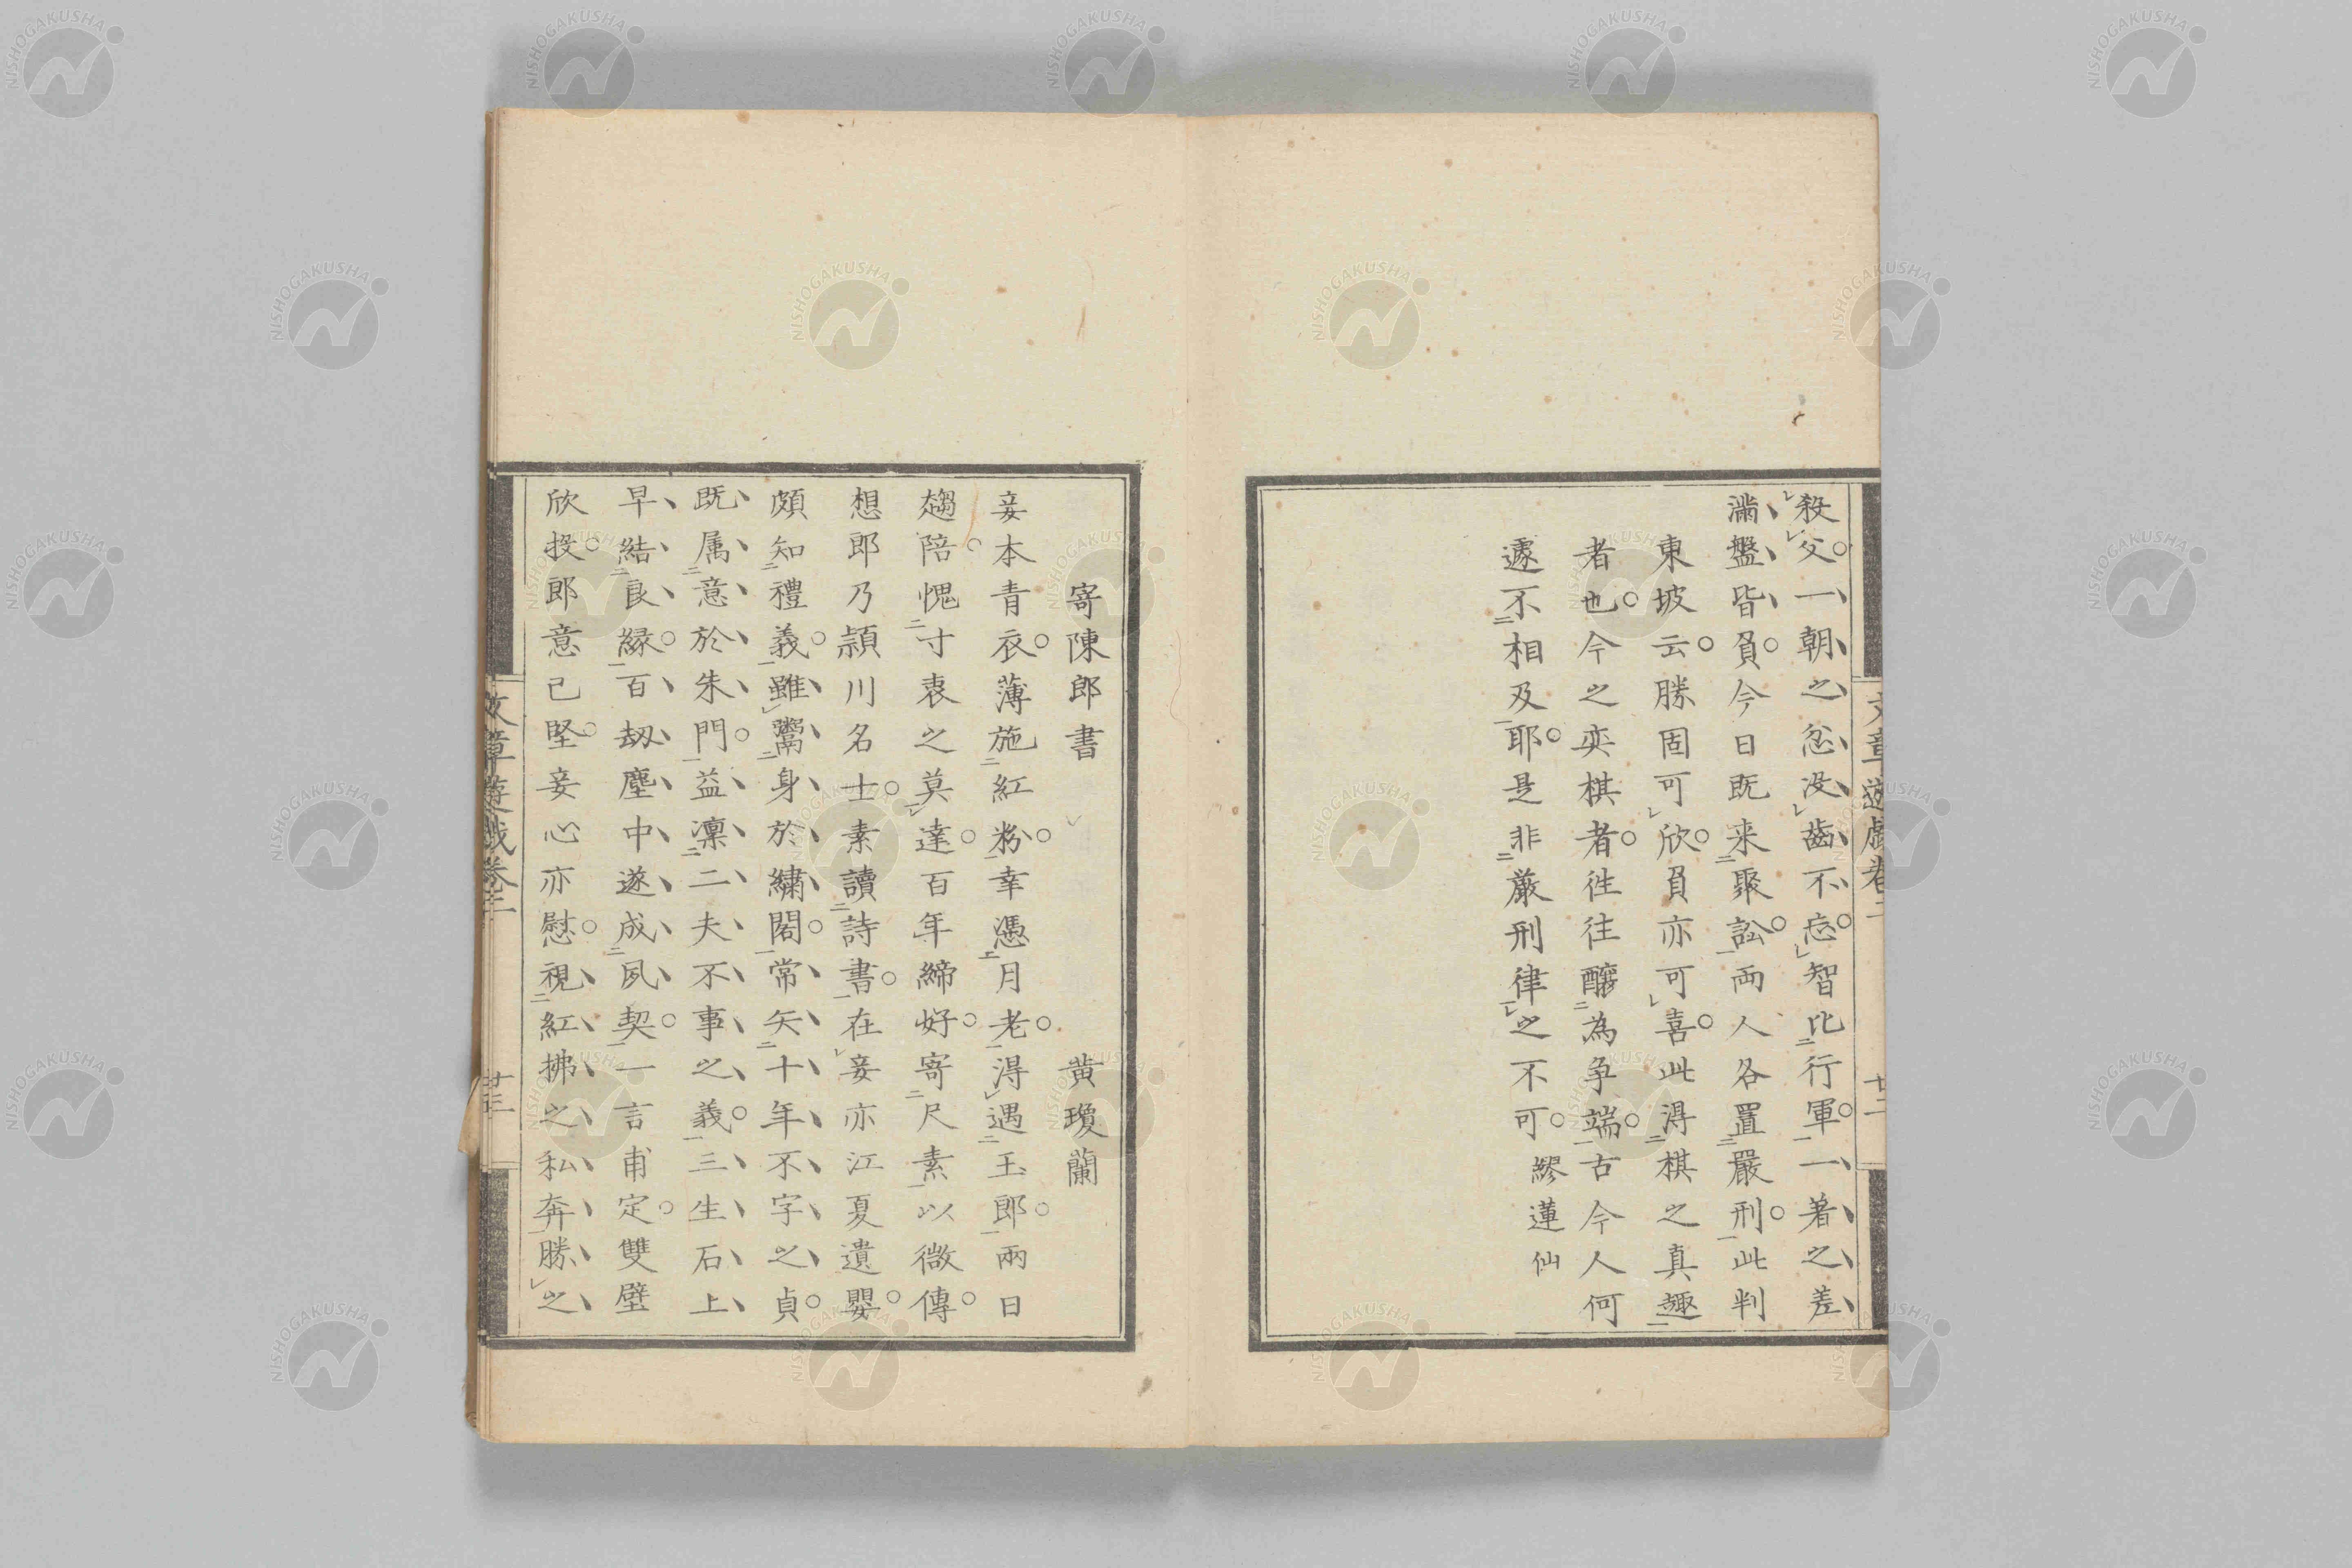 殺父一朝之忿没齒不忘智比行軍一著之差
滿盤皆負今日既来聚訟兩人各置嚴刑此判
東坡云勝固可欣負亦可喜此得棋之真趣
者也今之奕棋者徃往釀為爭端古今人何
遽不相及耶是非嚴刑律之不可繆蓮仙
文章遊戲卷二
廿二
寄陳郎書
黄瓊蘭
妾本青衣薄施紅粉幸憑月老得遇玉郎兩日
趨陪愧寸衷之莫達百年締好寄尺素以微傳
想郎乃潁川名士素讀詩書在妾亦江夏遺嬰
頗知禮義雖鬻身於繡閣常矢十年不字之貞
既属意於朱門益凜二夫不事之義三生石上
早結良緣百劫塵中遂成夙契一言甫定雙璧
欣投郎意已堅妾心亦慰視紅拂之私奔勝之
文章遊戲卷二
廿三
NISHOGAKUSHA